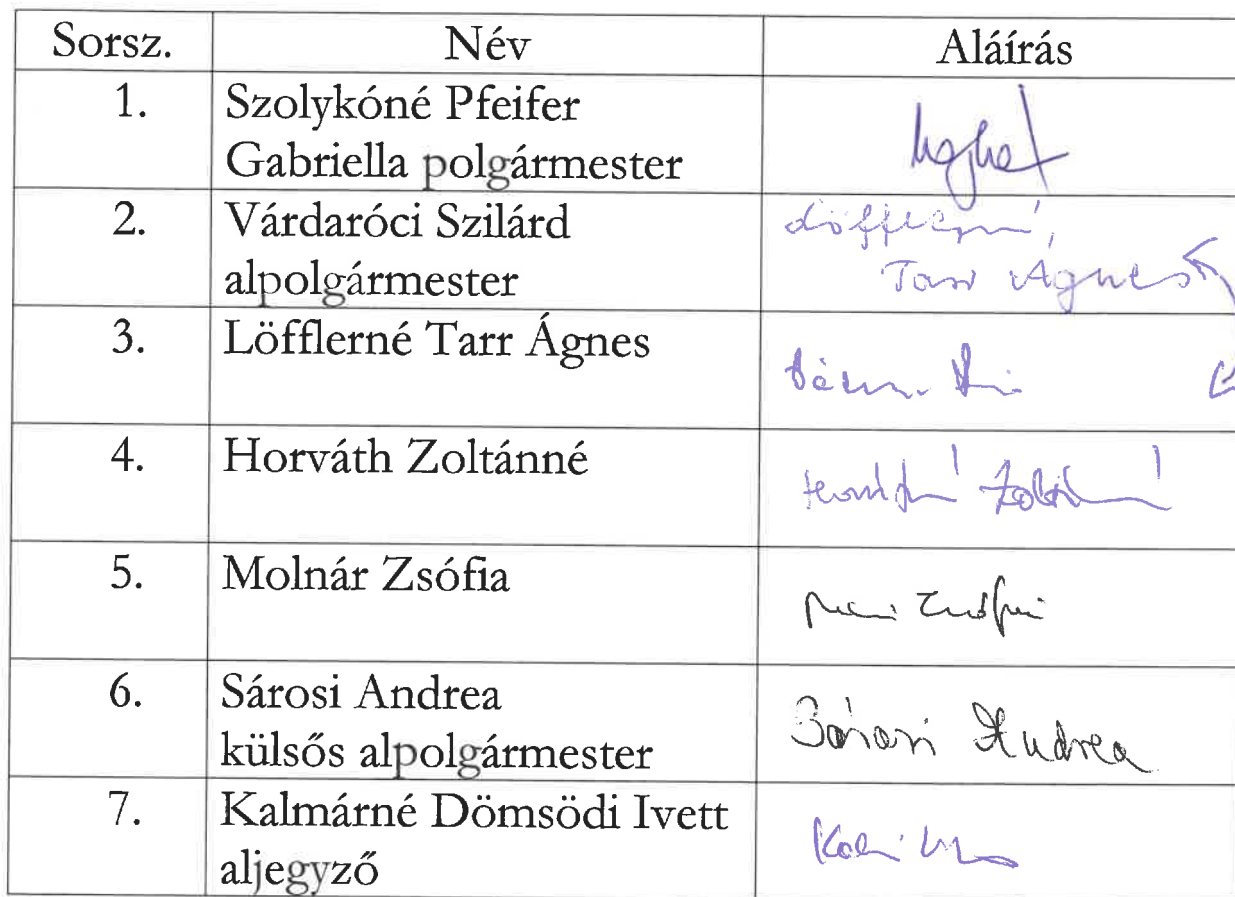 Sorsz. Név Aláírás
1. Szolykóné Pfeifer
Gabriella polgármester
2. Várdaróci Szilárd
alpolgármester
Tarr Ágnes
3. Löfflerné Tarr Ágnes
4. Horváth Zoltánné
5. Molnár Zsófia
6. Sárosi Andrea
külsős alpolgármester
Sárosi Andrea
7. Kalmárné Dömsödi Ivett
aljegyző